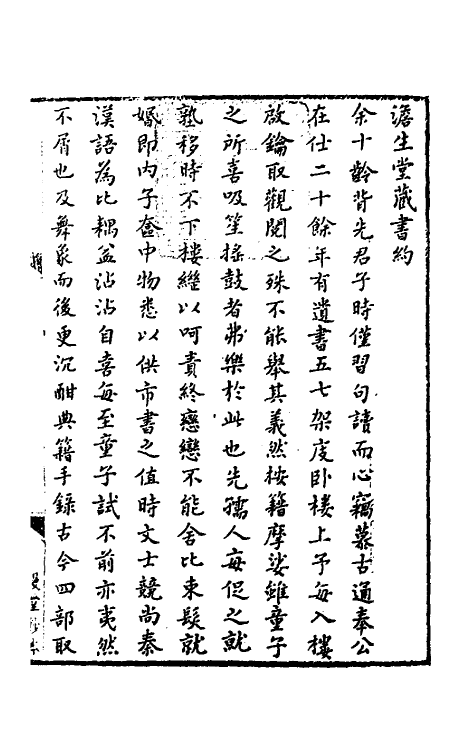 澹生堂藏書約
余十齡背先君子時僅習句讀而心竊慕古通奉公
在仕二十餘年有遺書五七架庋臥樓上予每入樓
啟鑰取觀閱之殊不能舉其義然按籍摩娑雖童子
之所喜吸笙搖鼓者弗樂於此也先孺人每促之就
塾移時不下樓繼以呵責終戀戀不能舍比束髮就
婚即內子奩中物悉以供市書之值時文士競尚秦
漢語為比耦益沾沾自喜每至童子試不前亦夷然
不屑也及舞象而後更沉酣典籍手錄古今四部取